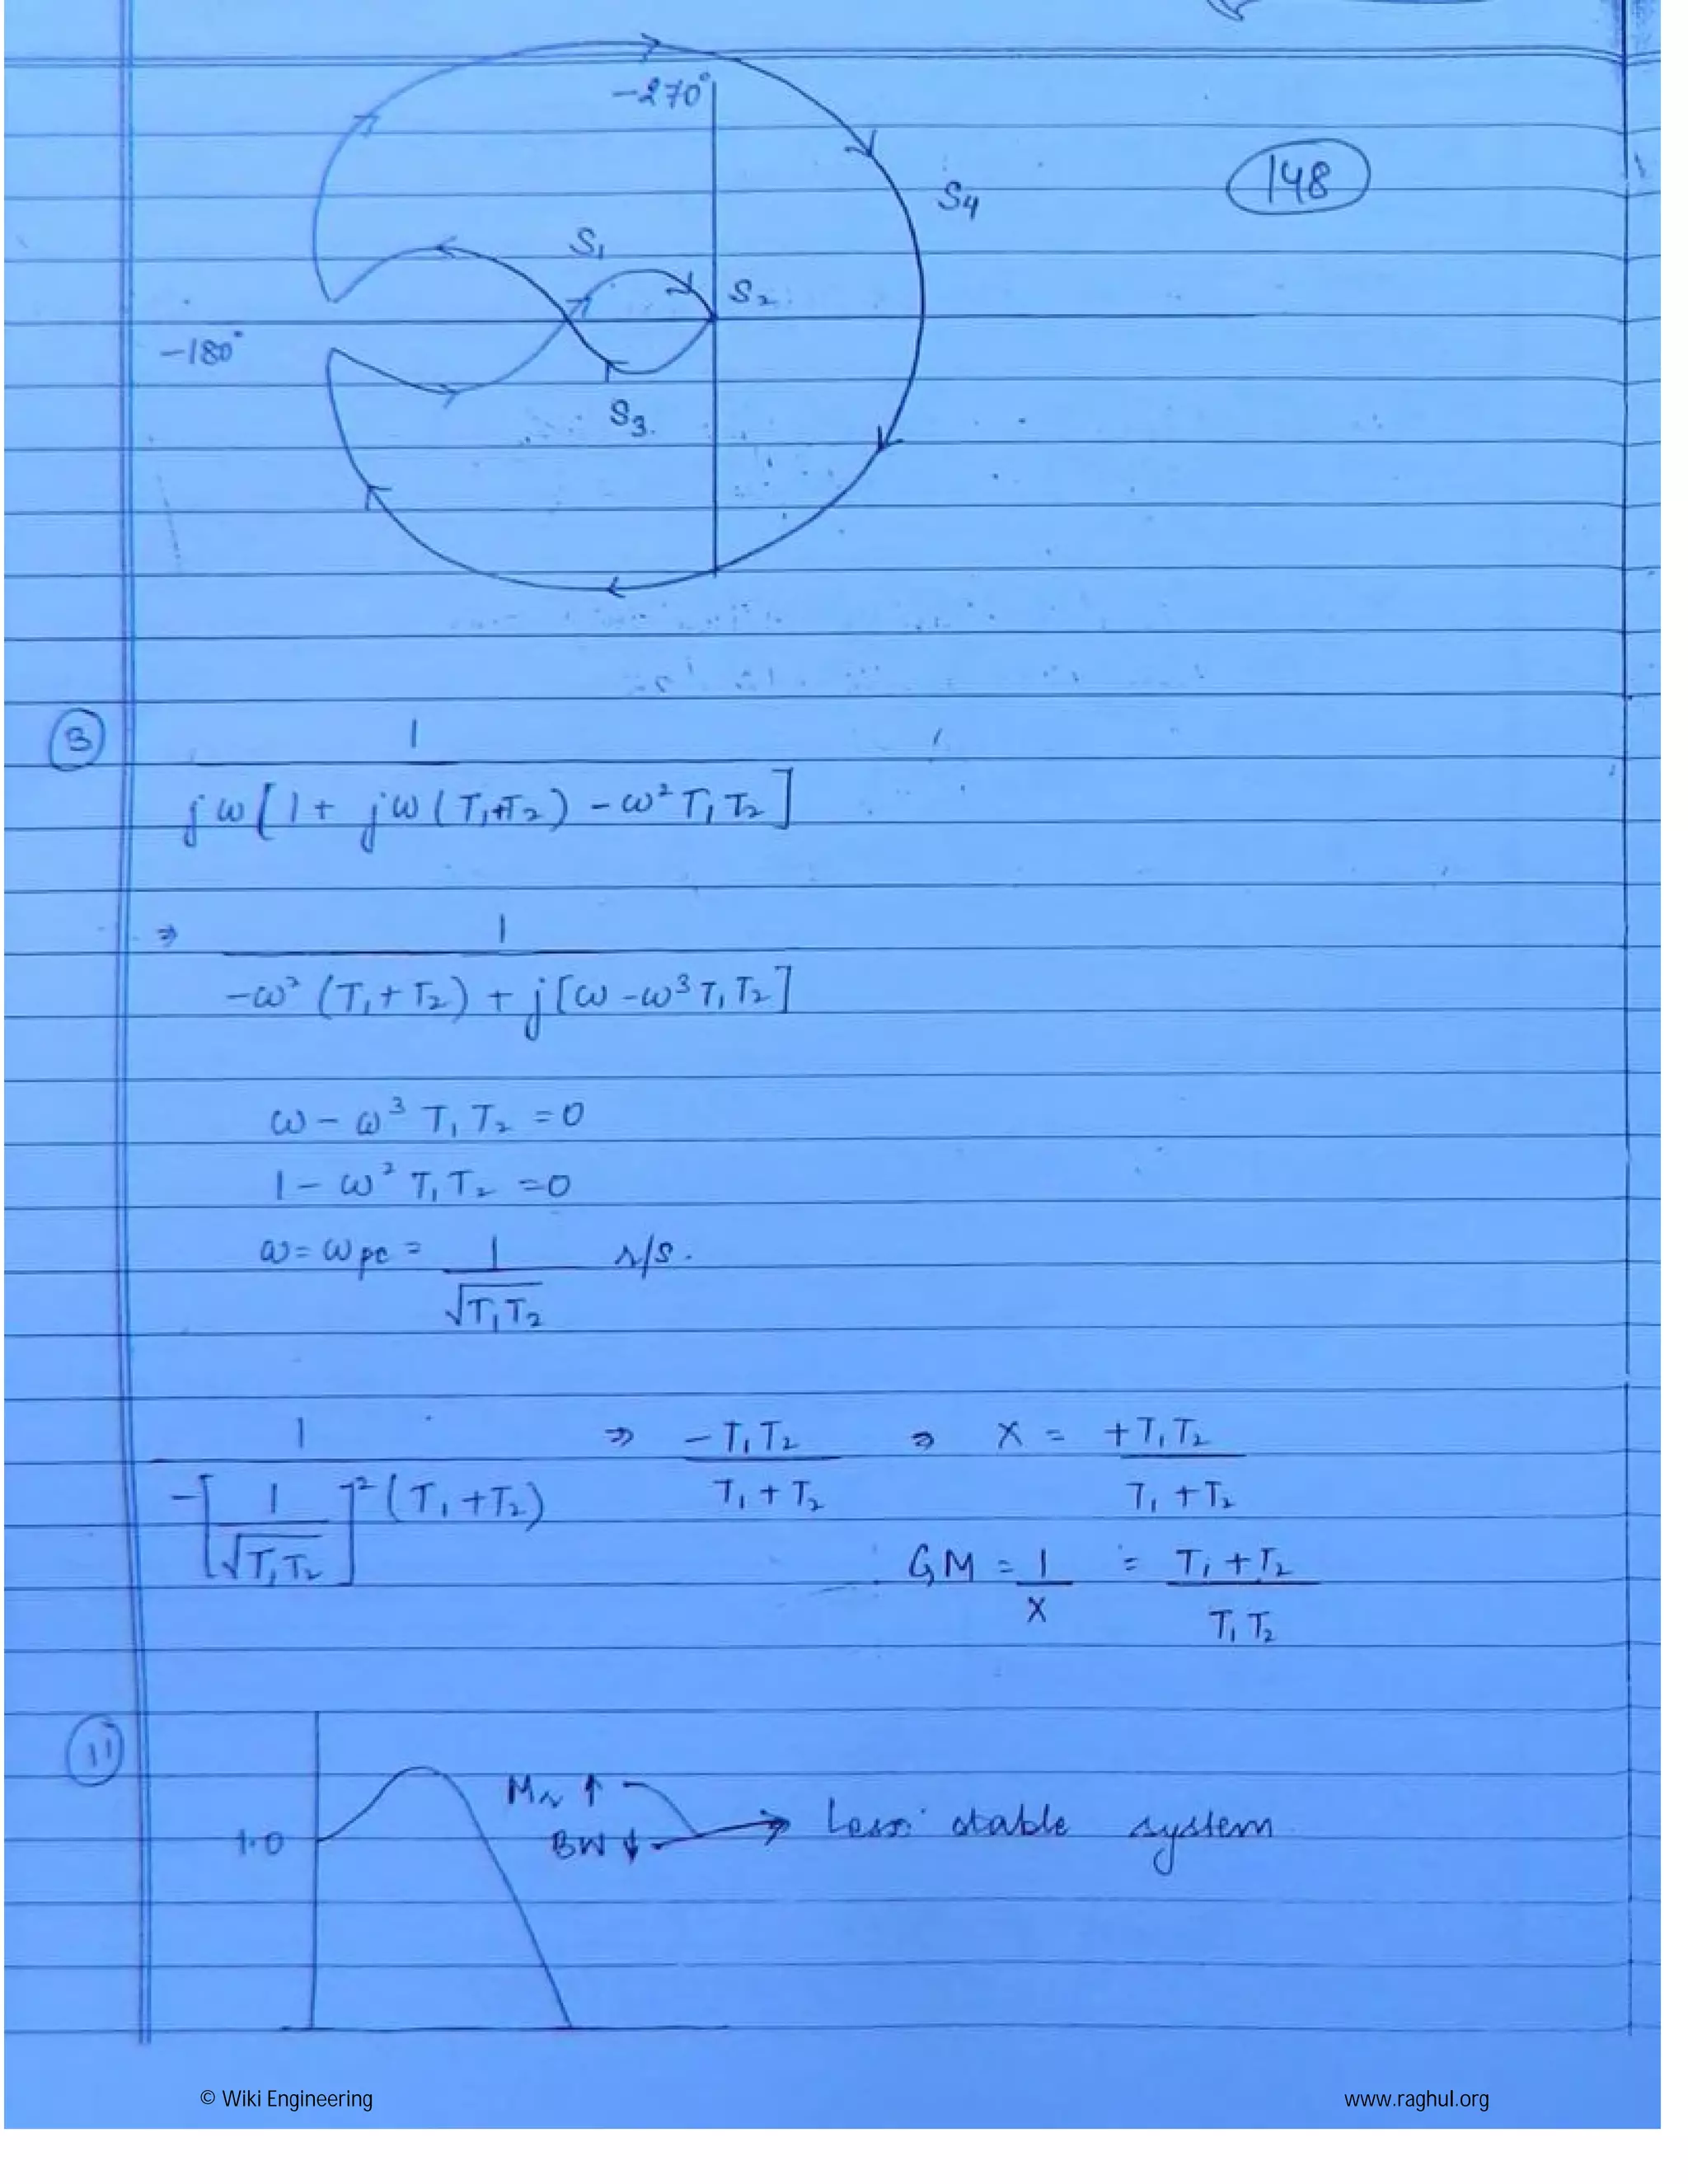 -270°
148
S4
S1
S2
-180°
S3
3
1
jω[1+ jω(T1+T2) - ω² T1 T2]
⇒ 1
-ω² (T1+T2) + j[ω-ω³ T1 T2]
ω - ω³ T1 T2 = 0
1 - ω² T1 T2 = 0
ω = ωpc = 1 r/s.
√T1T2
1 ⇒ -T1T2 ⇒ X = +T1T2
-[1/√T1T2]² (T1+T2) T1+T2 T1+T2
GM = 1 = T1+T2
X T1 T2
11
Mr ↑
1.0 BW ↓ → Less stable system
© Wiki Engineering www.raghul.org